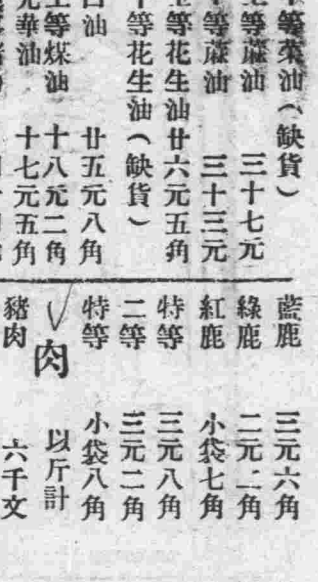 等菜油(缺貨)
等蔴油 三十七元
等蔴油 三十三元
等花生油 廿六元五角
等花生油(缺貨)
油 廿五元八角
等煤油 十八元二角
華油 十七元五角
藍鹿 三元六角
綠鹿 二元二角
紅鹿 小袋七角
特等 三元八角
二等 三元二角
特等 小袋八角
肉 以斤計
豬肉 六千文